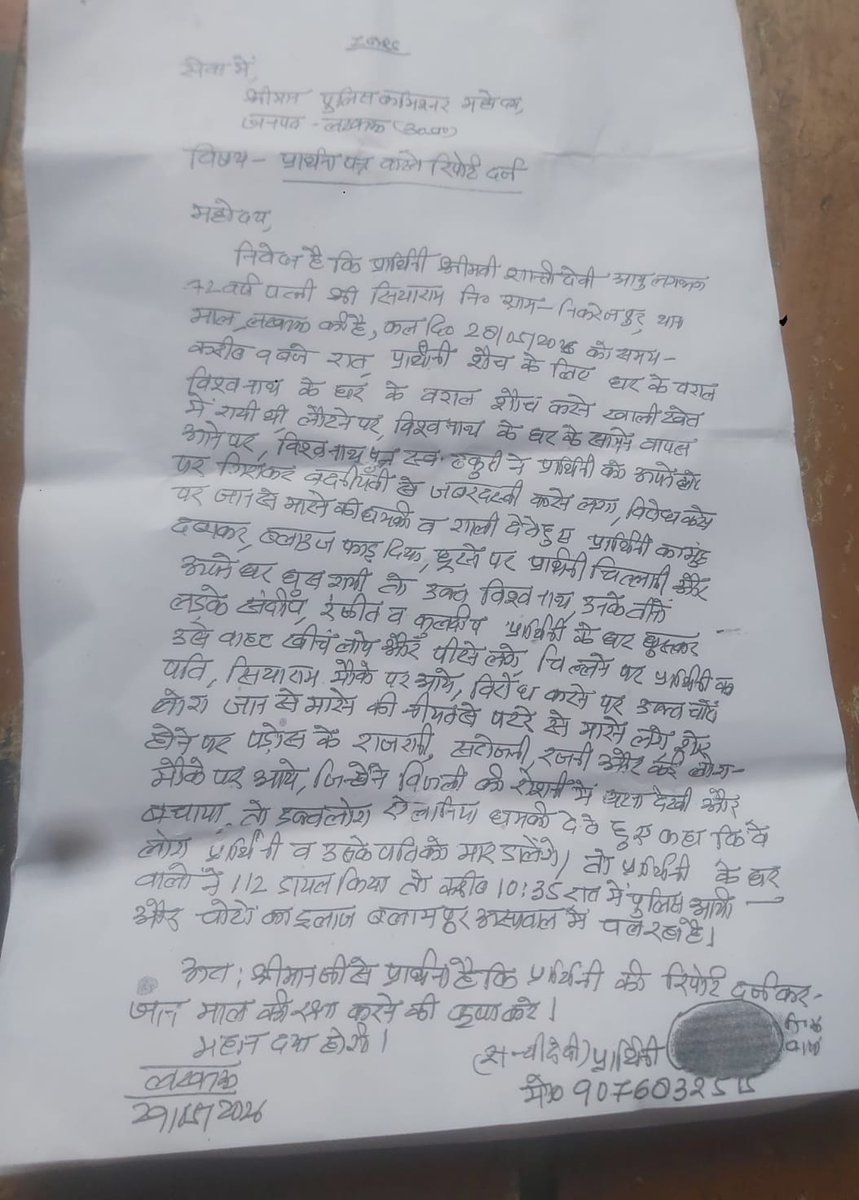 सेवा में,
श्रीमान पुलिस कमिश्नर महोदय,
जनपद - लखनऊ (उ०प्र०)
विषय - प्रार्थना पत्र वास्ते रिपोर्ट दर्ज
महोदय,
निवेदन है कि प्रार्थिनी श्रीमती शान्ती देवी आयु लगभग
72 वर्ष पत्नी श्री सियाराम नि० ग्राम - थाना
माल, लखनऊ की है, कल दि० 28/05/2026 को समय -
करीब 9 बजे रात, प्रार्थिनी शौच के लिए घर के बगल
विश्वनाथ के घर के बगल शौच करने खाली खेत
में गयी थी, लौटने पर, विश्वनाथ के घर के सामने वापस
आने पर, विश्वनाथ पुत्र स्व० ठकुरी ने प्रार्थिनी को
पर गिराकर बदनीयती से जबरदस्ती करने लगा, विरोध करने
पर जान से मारने की धमकी व गाली देते हुए प्रार्थिनी का मुंह
दबाकर, ब्लाउज फाड़ दिया, छूटने पर प्रार्थिनी चिल्लायी और
अपने घर घुस गयी तो उक्त विश्वनाथ, उनके तीनों
लड़के संदीप, रंजीत व कुलदीप प्रार्थिनी के घर घुसकर
उसे बाहर खींच लाये और पीटने लगे, चिल्लाने पर प्रार्थिनी के
पति, सियाराम मौके पर आये, विरोध करने पर उक्त चारों
लोग जान से मारने की नीयत से पटरे से मारने लगे, शोर
होने पर पड़ोस के राजरानी, सरोजनी, रजनी और कई लोग -
मौके पर आये, जिन्होंने बिजली की रोशनी में घटना देखी और
बचाया, तो उक्त लोग ऐलानिया धमकी देते हुए कहा कि वे
लोग प्रार्थिनी व उसके पति को मार डालेंगे। तो प्रार्थिनी के घर
वालो ने 112 डायल किया तो करीब 10:35 रात में पुलिस आयी -
और चोटों का इलाज बलरामपुर अस्पताल में चल रहा है।
अतः श्रीमान जी से प्रार्थना है कि प्रार्थिनी की रिपोर्ट दर्ज कर -
जान माल की रक्षा करने की कृपा करें।
महान दया होगी।
प्रार्थिनी
लखनऊ
मो०
29/05/2026